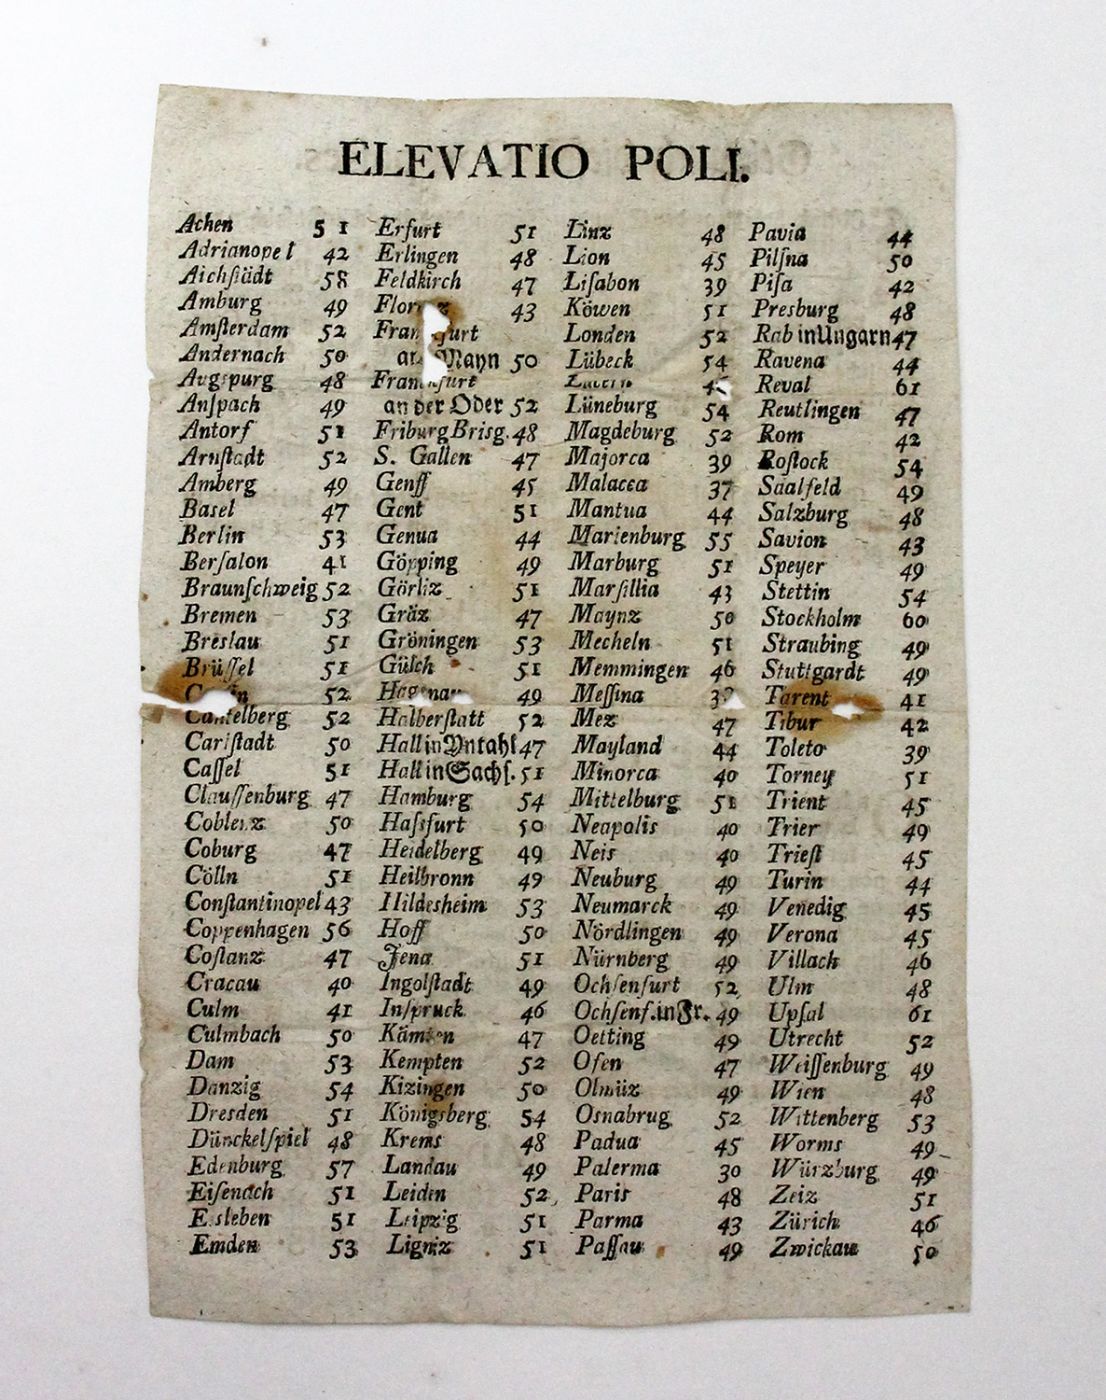 ELEVATIO POLI.
Achen 51
Adrianopel 42
Aichſtädt 58
Amburg 49
Amſterdam 52
Andernach 50
Augſpurg 48
Anſpach 49
Antorf 51
Arnſtadt 52
Amberg 49
Basel 47
Berlin 53
Berſalon 41
Braunſchweig 52
Bremen 53
Breslau 51
Brüſſel 51
52
Cantelberg 52
Carlſtadt 50
Caſſel 51
Clauſſenburg 47
Coblenz 50
Coburg 47
Cölln 51
Conſtantinopel 43
Coppenhagen 56
Coſtanz 47
Cracau 40
Culm 41
Culmbach 50
Dam 53
Danzig 54
Dresden 51
Dünckelſpiel 48
Edenburg 57
Eiſenach 51
Eisleben 51
Emden 53
Erfurt 51
Erlingen 48
Feldkirch 47
Florenz 43
Franckfurt
am Mayn 50
Franckfurt
an der Oder 52
Friburg Brisg. 48
S. Gallen 47
Genff 45
Gent 51
Genua 44
Göpping 49
Görliz 51
Gräz 47
Gröningen 53
Gülch 51
Hagenau 49
Halberſtatt 52
Hall in Yntahl 47
Hall in Sachſ. 51
Hamburg 54
Haſsfurt 50
Heidelberg 49
Heilbronn 49
Hildesheim 53
Hoff 50
Jena 51
Ingolſtadt 49
Inſpruck 46
Kämten 47
Kempten 52
Kizingen 50
Königsberg 54
Krems 48
Landau 49
Leiden 52
Leipzig 51
Ligniz 51
Linz 48
Lion 45
Liſabon 39
Köwen 51
Londen 52
Lübeck 54
Lüneburg 54
Magdeburg 52
Majorca 39
Malacca 37
Mantua 44
Marienburg 55
Marburg 51
Marſillia 43
Maynz 50
Mecheln 51
Memmingen 46
Meſſina
Mez 47
Mayland 44
Minorca 40
Mittelburg 51
Neapolis 40
Neis 40
Neuburg 49
Neumarck 49
Nördlingen 49
Nürnberg 49
Ochſenfurt 52
Ochſenf. in Fr. 49
Oetting 49
Ofen 47
Olmüz 49
Osnabrug 52
Padua 45
Palerma 30
Paris 48
Parma 43
Paſſau 49
Pavia 44
Pilſna 50
Piſa 42
Presburg 48
Rab in Ungarn 47
Ravena 44
Reval 61
Reutlingen 47
Rom 42
Roſtock 54
Saalfeld 49
Salzburg 48
Savion 43
Speyer 49
Stettin 54
Stockholm 60
Straubing 49
Stuttgardt 49
Tarent 41
Tibur 42
Toleto 39
Torney 51
Trient 45
Trier 49
Trieſt 45
Turin 44
Venedig 45
Verona 45
Villach 46
Ulm 48
Upſal 61
Utrecht 52
Weiſſenburg 49
Wien 48
Wittenberg 53
Worms 49
Würzburg 49
Zeiz 51
Zürich 46
Zwickau 50